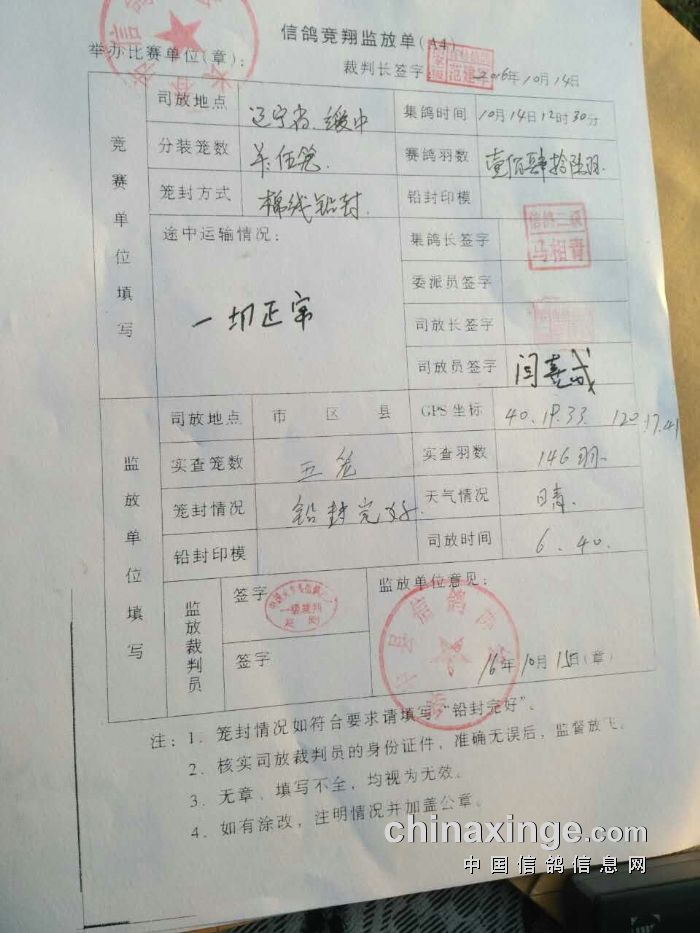 信鸽竞翔监放单(A4)
举办比赛单位(章):
裁判长签字 2016年10月14日
竞赛单位填写
司放地点 辽宁省.绥中 集鸽时间 10月14日12时30分
分装笼数 伍笼. 赛鸽羽数 壹佰肆拾陆羽.
笼封方式 棉线铅封. 铅封印模
途中运输情况: 集鸽长签字 信鸽二级 马相青
一切正常 委派员签字
司放长签字
司放员签字 闫喜成
监放单位填写
司放地点 市 区 县 GPS坐标 40.19.33 120.17.41
实查笼数 五笼 实查羽数 146羽.
笼封情况 铅封完好. 天气情况 晴.
铅封印模 司放时间 6.40.
监放裁判员 签字 一级裁判 监放单位意见:
签字 县信鸽协会
16年10月15日(章)
注:1. 笼封情况如符合要求请填写“铅封完好”。
2. 核实司放裁判员的身份证件,准确无误后,监督放飞。
3. 无章、填写不全,均视为无效。
4. 如有涂改,注明情况并加盖公章。
chinaxinge.com
中国信鸽信息网